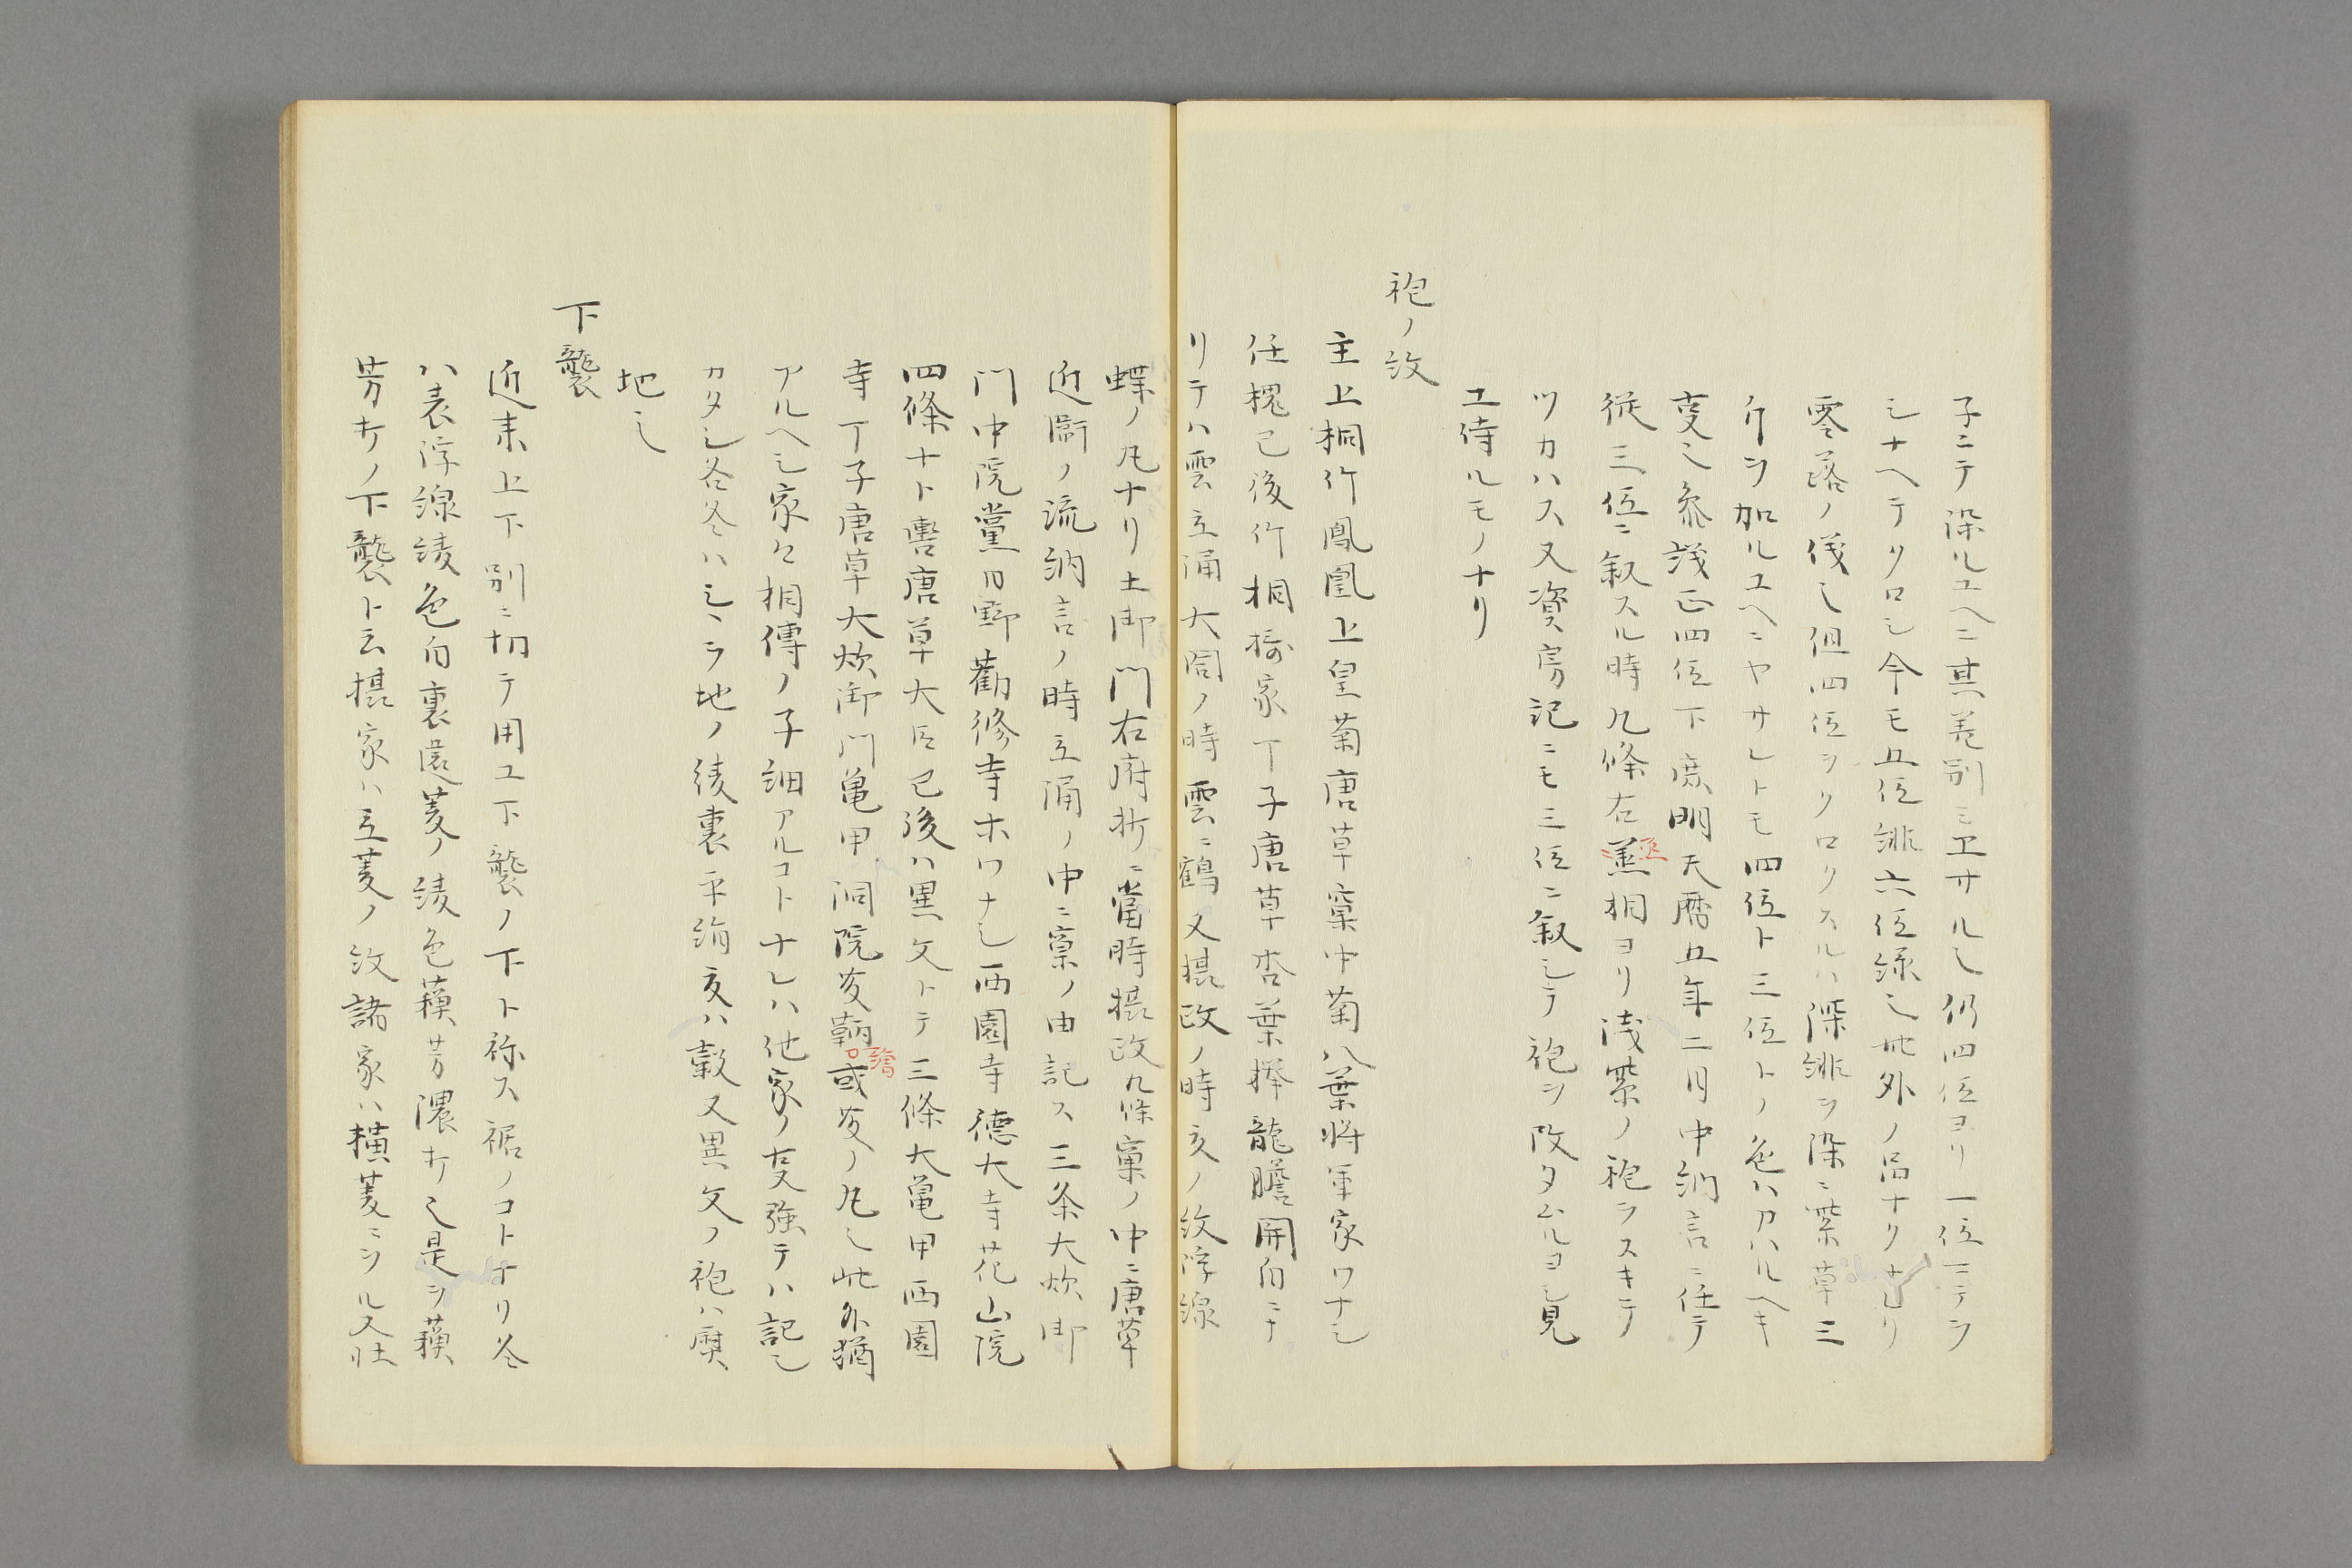 子ニテ染ルユヘニ其差別ミエサルヒ仍四位ヨリ一位ニテヲ
シナヘテクロシ今モ五位緋六位緑也此外ノ品ナクナレリ
零落ノ儀也但四位ヲクロクスルハ深緋ヲ染ニ紫草三
斤ヲ加ルユヘニヤサレトモ四位ト三位トノ色ハカハルヘキ
変也参議正四位下庶明天暦五年二月中納言ニ任テ
従三位ニ叙スル時九條右丞相ヨリ浅紫ノ袍ヲスキテ
ツカハス又資房記ニモ三位ニ叙シテ袍ヲ改タムルヨシ見
エ侍ルモノナリ
袍ノ紋
主上桐竹鳳凰上皇菊唐草窠中菊八葉将軍家ワナシ
任槐已後竹桐摂家丁子唐草杏葉摂龍膽開白ニナ
リテハ雲立涌大閤ノ時雲ニ鶴又摂政ノ時亥ノ紋浮線
蝶ノ丸ナリ土御門右府抄ニ當時摂政九條窠ノ中ニ唐草
近衛ノ流納言ノ時立涌ノ中ニ窠ノ由記ス三条大炊御
門中院黨日野勸修寺ホワナシ西園寺徳大寺花山院
四條ナト轡唐草大臣已後ハ異文トテ三條大亀甲西園
寺丁子唐草大炊御門亀甲洞院鞆繪或ノ丸也此外猶
アルヘシ家々相傳ノ子細アルコトナレハ他家ノ変強テハ記シ
カタシ冬冬ハシヽラ地ノ綾裏平絹夏ハ穀又異文ノ袍ハ熨
地也
下襲
近来上下別ニ切テ用ユ下襲ノ下ト称ス裾ノコトナリ冬
ハ表浮線綾色白裏遠菱ノ綾色蘓芳濃キ也是ヲ蘓
芳キノ下襲ト云摂家ハ立菱ノ紋諸家ハ横菱ニシル又壮